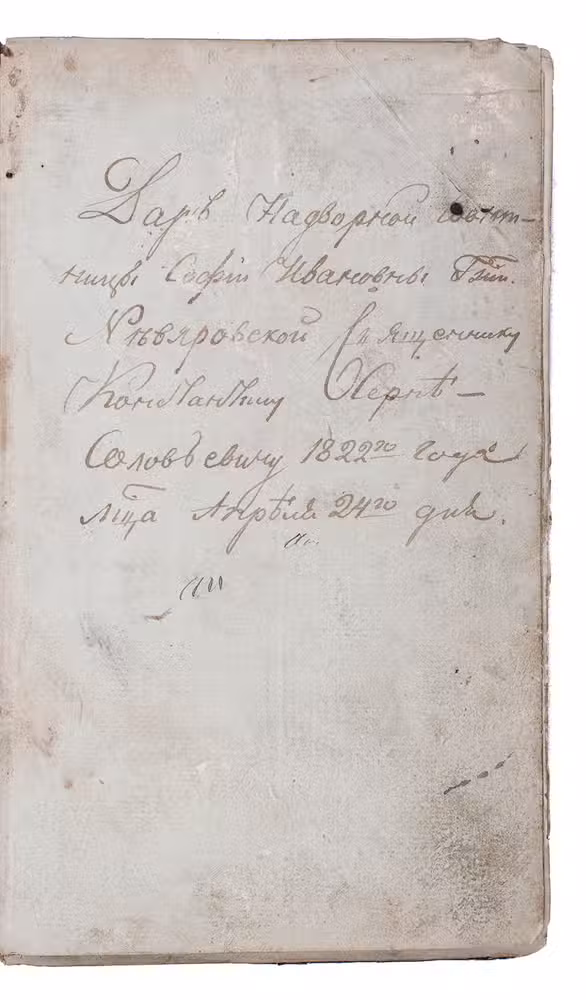 Даръ Надворной Совѣт-
ницы Софіи Ивановны
Священнику
Константину
Соловьевичу 1822го года
мца Апрѣля 24го дня.